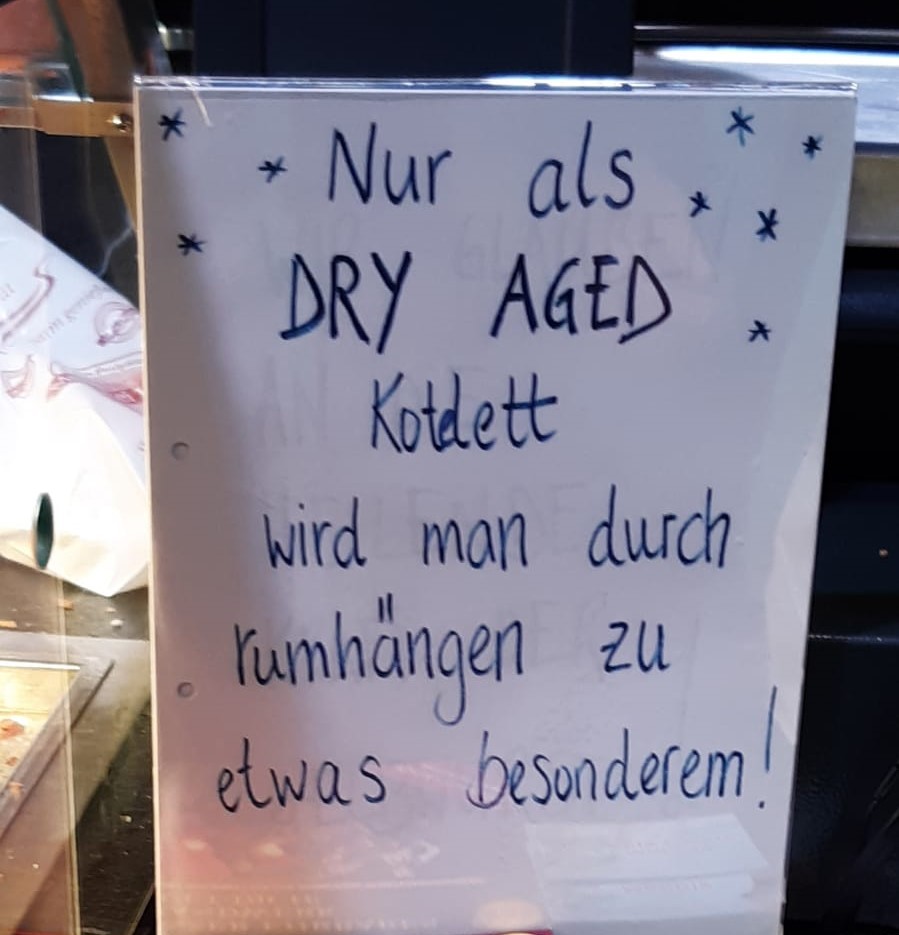 Nur als
DRY AGED
Kotelett
wird man durch
rumhängen zu
etwas besonderem!